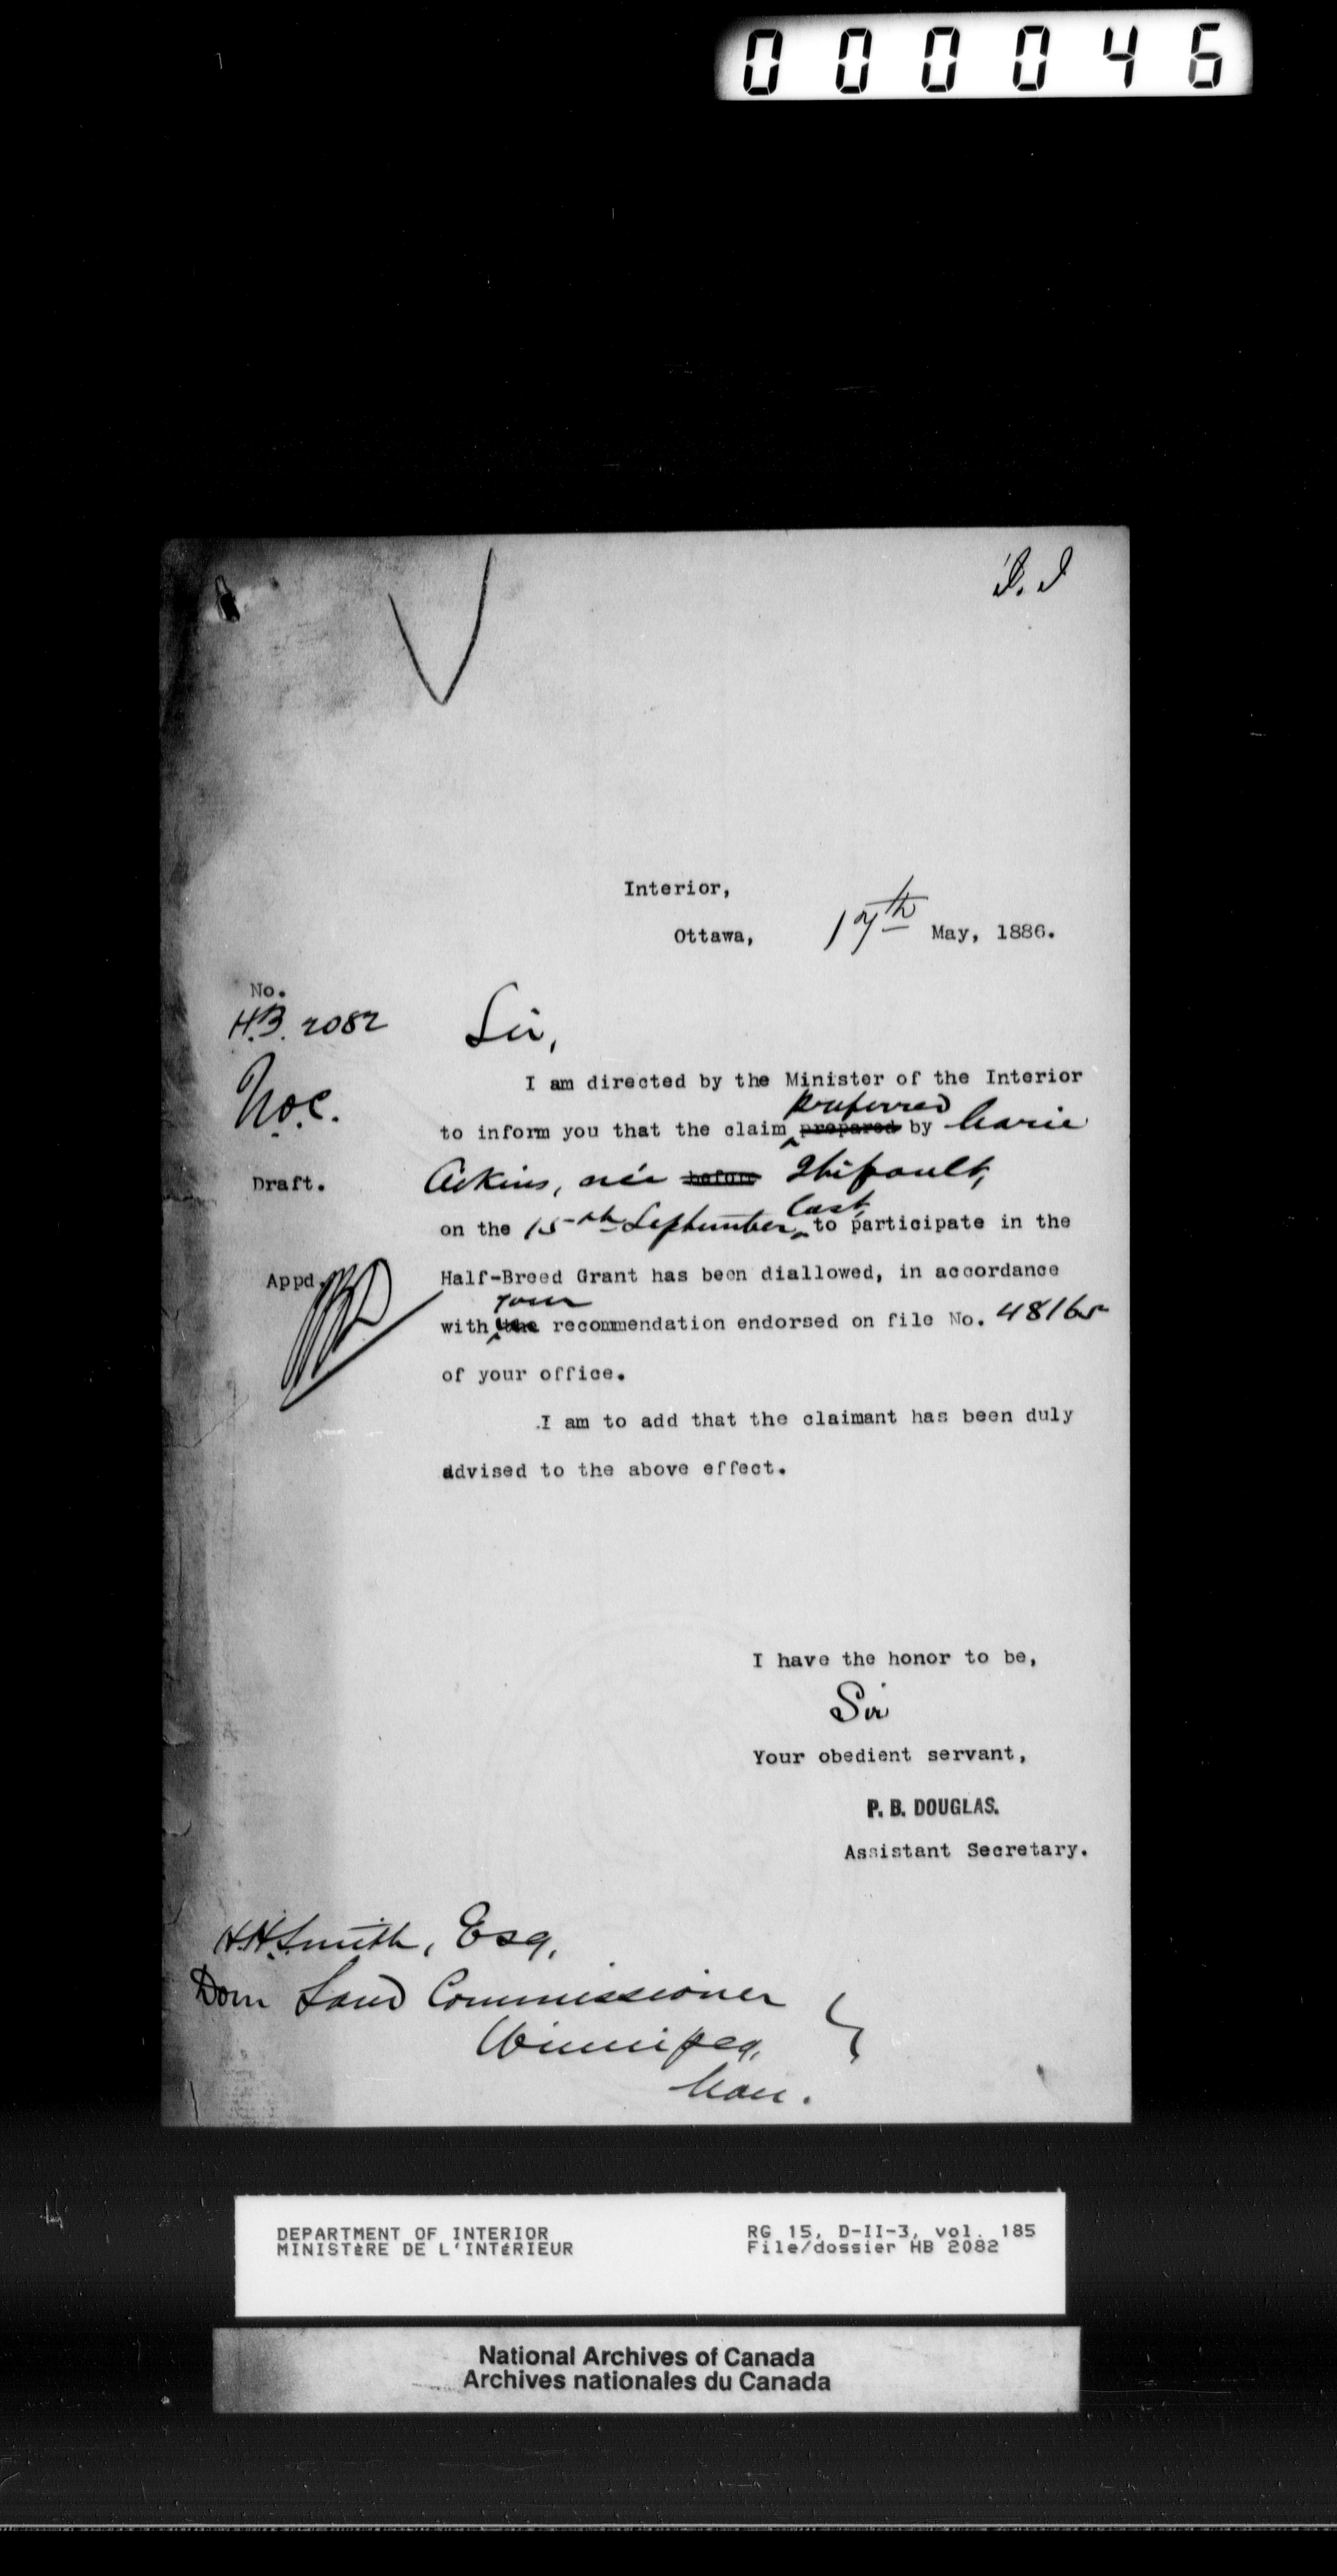 000046
Interior,
Ottawa, 17th May, 1886.
No.
H.B. 2082
Sir,
I am directed by the Minister of the Interior
preferred
to inform you that the claim prepared by Marie
Draft.
Adkins, née before Thifault,
last
on the 15th September to participate in the
Appd.
Half-Breed Grant has been diallowed, in accordance
your
with the recommendation endorsed on file No. 48165
of your office.
I am to add that the claimant has been duly
advised to the above effect.
I have the honor to be,
Sir
Your obedient servant,
P. B. DOUGLAS.
Assistant Secretary.
H.H. Smith, Esq,
Dom Land Commissioner
Winnipeg,
Man.
DEPARTMENT OF INTERIOR
MINISTÈRE DE L'INTÉRIEUR
RG 15, D-II-3, vol. 185
File/dossier HB 2082
National Archives of Canada
Archives nationales du Canada